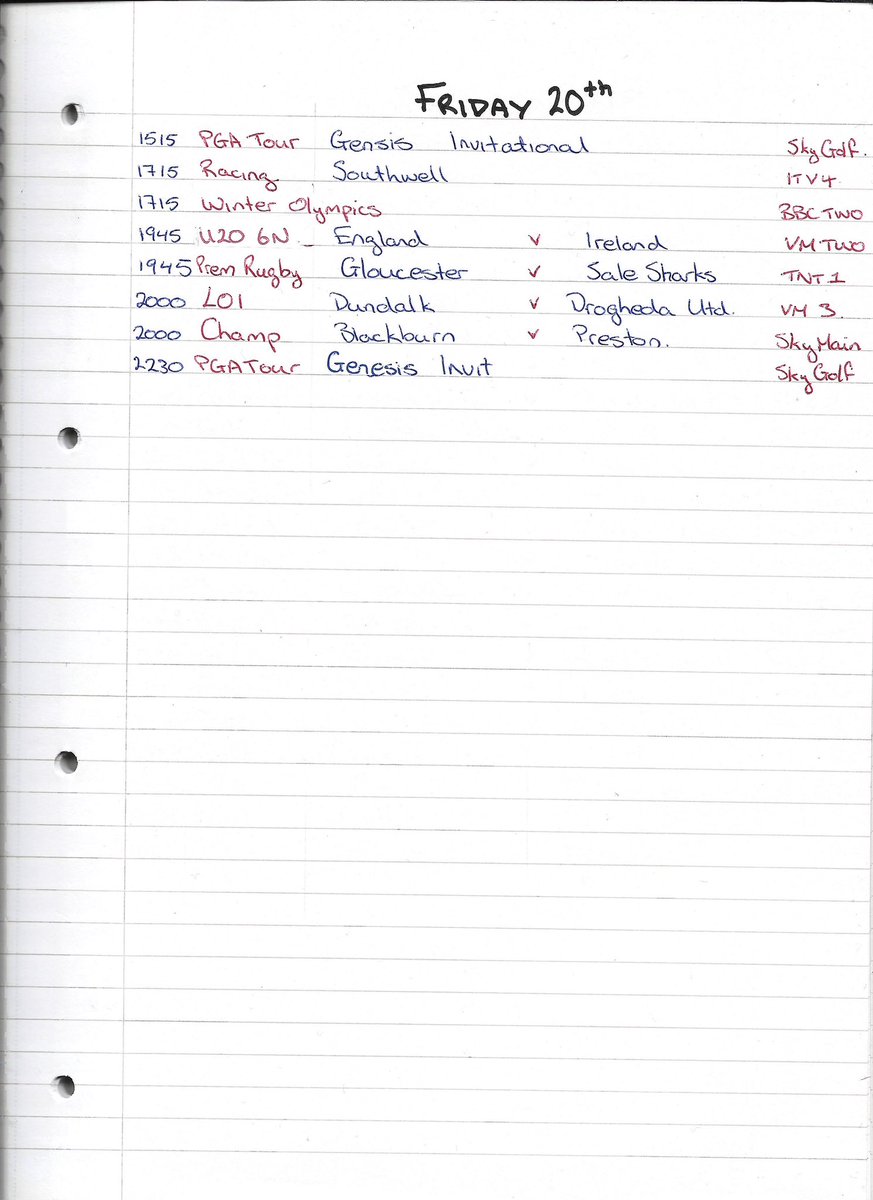 FRIDAY 20th
1515 PGA Tour Gensis Invitational Sky Golf.
1715 Racing Southwell ITV4
1715 Winter Olympics BBC TWO
1945 U20 6N - England v Ireland VM TWO
1945 Prem Rugby Gloucester v Sale Sharks TNT 1
2000 LOI Dundalk v Drogheda Utd. VM 3
2000 Champ Blackburn v Preston. Sky Main
2230 PGA Tour Genesis Invit Sky Golf